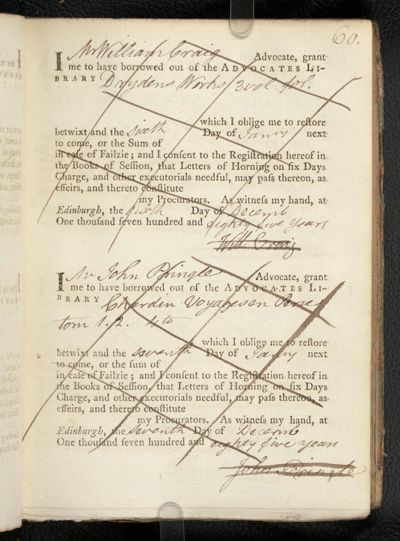 60.
I Mr William Craig Advocate, grant
me to have borrowed out of the ADVOCATES LI-
BRARY Drydens Works 3 vol. fol.
which I oblige me to restore
betwixt and the sixth Day of Janry next
to come, or the Sum of
in case of Failzie; and I consent to the Registration hereof in
the Books of Session, that Letters of Horning on six Days
Charge, and other executorials needful, may pass thereon, as
effeirs, and thereto constitute
my Procurators. As witness my hand, at
Edinburgh, the sixth Day of Decemb
One thousand seven hundred and eighty five years
Will: Craig
I Mr John Pringle Advocate, grant
me to have borrowed out of the ADVOCATES LI-
BRARY Chardin Voyages en Perse
tom 1. 2. 4to
which I oblige me to restore
betwixt and the seventh Day of Janry next
to come, or the sum of
in case of Failzie; and I consent to the Registration hereof in
the Books of Session, that Letters of Horning on six Days
Charge, and other executorials needful, may pass thereon, as
effeirs, and thereto constitute
my Procurators. As witness my hand, at
Edinburgh, the seventh Day of Decemb
One thousand seven hundred and eighty five years
John Pringle